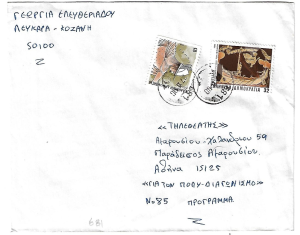 ΓΕΩΡΓΙΑ ΕΛΕΥΘΕΡΙΑΔΟΥ
ΛΕΥΚΑΡΑ - ΚΟΖΑΝΗ
50100
ΔΗΜΟΚΡΑΤΙΑ 32
«ΤΗΛΕΘΕΑΤΗΣ»
Αμαρουσίου-Χαλανδρίου 59
Παράδεισος Αμαρουσίου
Αθήνα 15125
«ΓΙΑ ΤΟΝ ΠΟΛΥ-ΔΙΑΓΩΝΙΣΜΟ»
Νο 85 ΠΡΟΓΡΑΜΜΑ